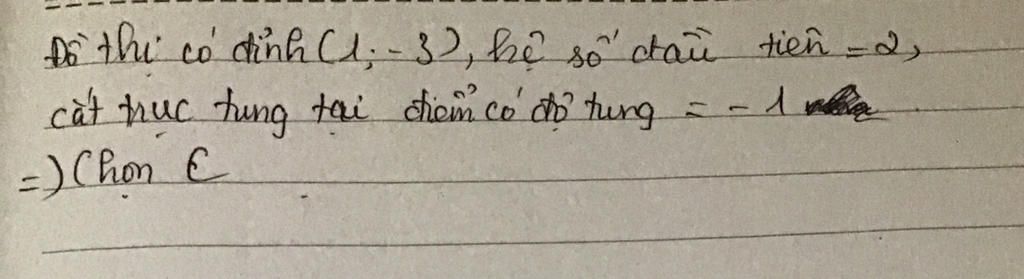 Đồ thị có đỉnh (1; -3), hệ số đầu tiên = 2,
cắt trục tung tại điểm có độ tung = -1
=) Chọn C